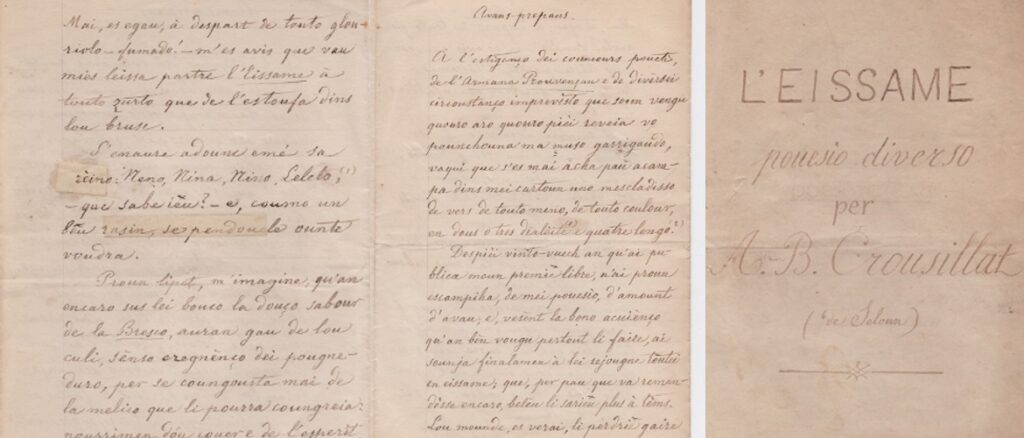 Mai, es egau, à despart de touto glou-
riolo-fumado! — m'es avis que vau
mies leissa partre l'Eissame à
touto zurto que de l'estoufa dins
lou brusc.
S'enaure adounc emé sa
reino: Neno, Nina, Nino, Lelèto, (1)
— que sabe iéu? — e, coumo un
bèu rasin, se pendoule ounte
voudra.
Proun lipet, m'imagine, qu'an
encaro sus lei bouco la douço sabour
de la Bresco, auran gau de lou
culi, sènso cregnènço dei pougne-
duro, per se coungousta mai de
la melico que li pourra coungreia:
nourrimen dóu couer e de l'esperit
Avans-prepaus.
A l'estiganço dei councours pouèti,
de l'Armana Prouvençau e de diversei
circounstanço imprevisto que soun vengu
quouro aro quouro pièi reveia vo
pounchouna ma muso garrigaudo,
vaqui que s'es mai à cha pau acara-
pa dins mei cartoun uno mescladisso
de vers de touto meno, de touto coulour,
en dous o tres dialèite e quatre lengo.
Despièi vinto-vuech an qu'ai pu-
blica moun premié libre, n'ai proun
escampiha, de mei pouesio, d'amount
d'avau; e, vesènt la bono acuienço
qu'an bèn vougu pertout li faire, ai
sounja finalamen à lei rejougne toutei
en eissame; que, per pau que va reman-
dèsse encaro, belèu li sariéu plus à tèms.
Lou mounde, es verai, li perdrié gaire
L'EISSAME
pouesio diverso
per
A.-B. Crousillat
(de Seloun)